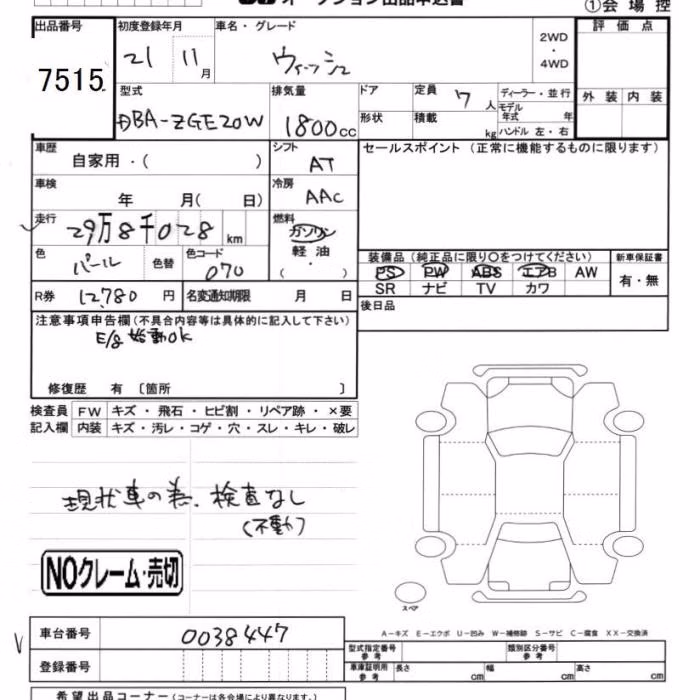 オークション出品申込書
①会場控
出品番号 初度登録年月 車名・グレード 2WD ・ 4WD 評価点
7515 21 11月 ウィッシュ
型式 排気量 ドア 定員 7人 ディーラー・並行 外装 内装
DBA-ZGE20W 1800cc 形状 積載 kg モデル年式 年
ハンドル 左・右
車歴 自家用・( ) シフト AT セールスポイント（正常に機能するものに限ります）
車検 年 月( 日) 冷房 AAC
走行 29万8千028 km 燃料 ガソリン
軽油
・
( )
色 パール 色替 色コード 070 装備品（純正品に限り○をつけてください） 新車保証書
PS PW ABS エアB AW 有・無
SR ナビ TV カワ
R券 12,780円 名変通知期限 月 日 後日品
注意事項申告欄（不具合内容等は具体的に記入して下さい）
E/g 始動OK
修復歴 有〔箇所 〕
検査員 FW キズ・飛石・ヒビ割・リペア跡・×要
記入欄 内装 キズ・汚レ・コゲ・穴・スレ・キレ・破レ
現状車の為、検査なし
(不動)
NOクレーム・売切
スペア
A－キズ E－エクボ U－凹み W－補修跡 S－サビ C－腐食 XX－交換済
車台番号 0038447
型式指定番号 参考 類別区分番号 参考
登録番号 車庫証明用 参考 長さ cm 幅 cm 高さ cm
希望出品コーナー（コーナーは各会場により異なります。）